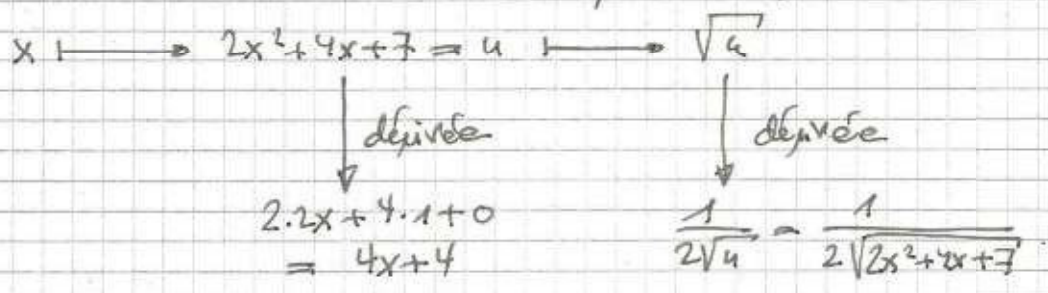 x ⟼ 2x²+4x+7 = u ⟼ √u
dérivée dérivée
2·2x + 4·1 + 0
= 4x+4
1/(2√u) = 1/(2√(2x²+4x+7))